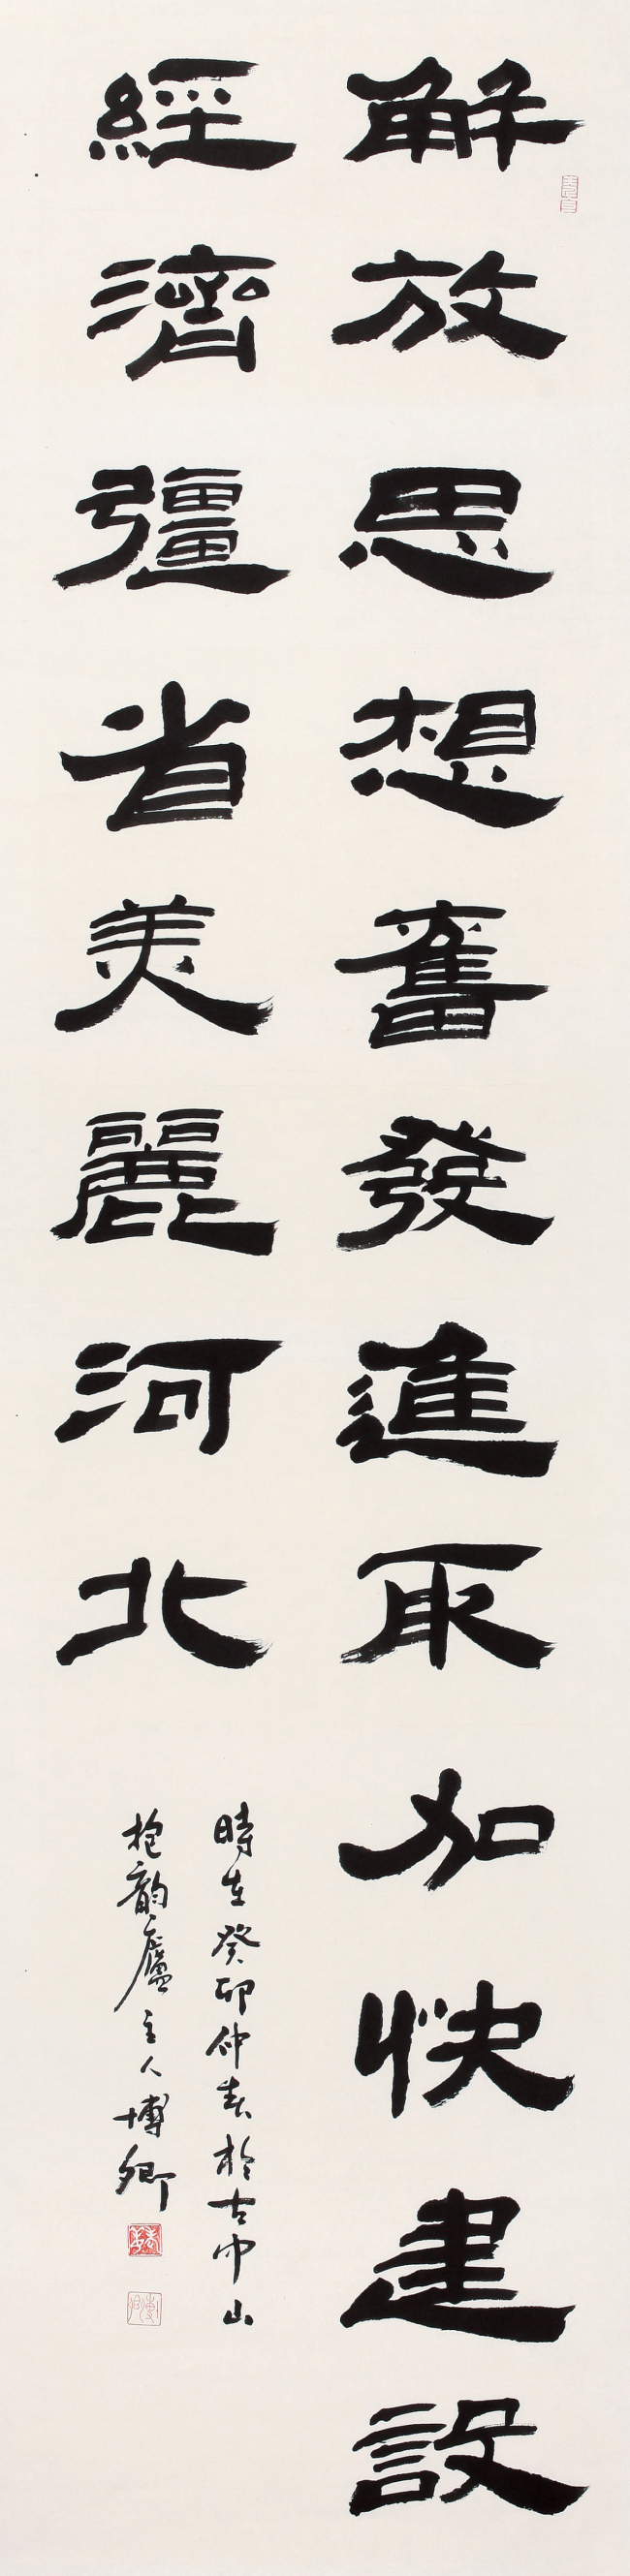 解放思想奮發進取加快建設
經濟彊省美麗河北
時在癸卯仲春於古中山
抱韵廬主人博卿